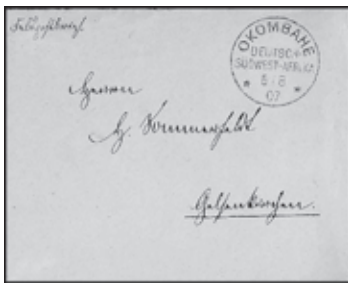 Feldpostbrief.
OKOMBAHE
DEUTSCH-
SÜDWEST-AFRIKA
07
Herrn
H. Sommerfeldt
Gelsenkirchen.